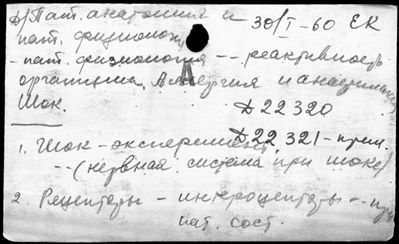 д/Пат. анатомия и 30/I-60 ЕК
пат. физиология
- пат. физиология -- реактивность
организма. Аллергия и анафилаксия
Шок.
Д 22 320
Д 22 321 - прим.
1. Шок - эксперимент.
-- (нервная система при шоке)
2. Рецепторы - интероцепторы -- при
пат. сост.